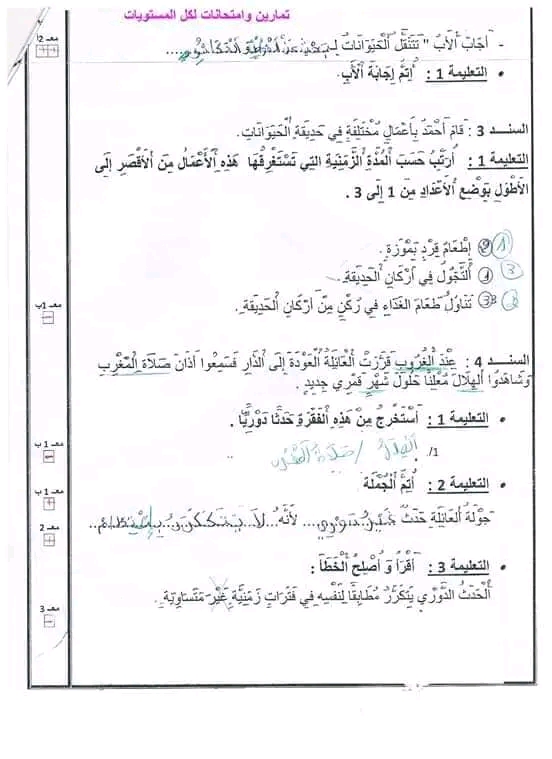 تمارين وامتحانات لكل المستويات
معـ 2أ
- أَجَابَ اُلأَبُ " تَتَنَقَّلُ اُلْحَيَوَانَاتُ لِـ
• التعليمة 1 : أُتِمُّ إِجَابَةَ اُلأَبِ.
السند 3 : قَامَ أَحْمَدُ بِأَعْمَالٍ مُخْتَلِفَةٍ فِي حَدِيقَةِ اُلْحَيَوَانَاتِ.
التعليمة 1 : أُرَتِّبُ حَسَبَ اُلْمُدَّةِ اُلزَّمَنِيَّةِ التِي تَسْتَغْرِقُهَا هَذِهِ اُلأَعْمَالُ مِنَ اُلأَقْصَرِ إِلَى
اُلأَطْوَلِ بِوَضْعِ اُلأَعْدَادِ مِنْ 1 إِلَى 3 .
إِطْعَامُ قِرْدٍ بِمَوْزَةٍ . 1
اُلتَّجَوُّلُ فِي أَرْكَانِ اُلْحَدِيقَةِ. 3
معـ 1ب
تَنَاوُلُ طَعَامِ الغَدَاءِ فِي رُكْنٍ مِنْ أَرْكَانِ اُلْحَدِيقَةِ.
السند 4 : عِنْدَ اُلْغُرُوبِ قَرَّرَتْ اُلْعَائِلَةُ اُلْعَوْدَةَ إِلَى اُلدَّارِ فَسَمِعُوا أَذَانَ صَلاَةِ اُلْمَغْرِبِ
وَشَاهَدُوا اُلْهِلاَلَ مُعْلِنًا حُلُولَ شَهْرٍ قَمَرِيٍّ جَدِيدٍ .
• التعليمة 1 : أَسْتَخْرِجُ مِنْ هَذِهِ اُلْفَقْرَةِ حَدَثًا دَوْرِيًّا .
معـ 1 ب
1/ الهلال / صلاة المغرب
• التعليمة 2 : أُتِمُّ اُلْجُمْلَةَ
معـ 1 ب
جَوْلَةُ اُلعَائِلَةِ حَدَثٌ غير دوري لأَنَّهُ لا يتكرر بانتظام
معـ 2
• التعليمة 3 : أَقْرَأُ وَ أُصْلِحُ اُلْخَطَأَ :
اُلْحَدَثُ اُلدَّوْرِيُّ يَتَكَرَّرُ مُطَابِقًا لِنَفْسِهِ فِي فَتَرَاتٍ زَمَنِيَّةٍ غَيْرَ مُتَسَاوِيَةٍ .
معـ 3